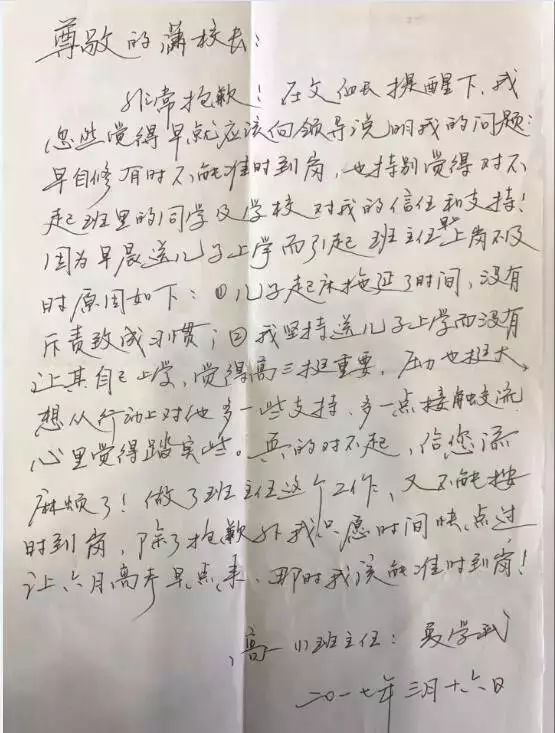 尊敬的潇校长：
非常抱歉！在文 提醒下，我
忽然觉得早就应该向领导说明我的问题：
早自修有时不能准时到岗，也特别觉得对不
起班里的同学及学校对我的信任和支持！
因为早晨送儿子上学而引起班主任早上岗不及
时原因如下：①儿子起床拖延了时间，没有
斥责致成习惯；②我坚持送儿子上学而没有
让其自己上学，觉得高三挺重要，压力也挺大，
想从行动上对他多一些支持、多一点接触交流
心里觉得踏实些。真的对不起，给您添
麻烦了！做了班主任这个工作，又不能按
时到岗，除了抱歉外我只愿时间快点过
让六月高考早点来，那时我该能准时到岗！
高一(1)班主任：夏学武
二〇一七年三月十六日